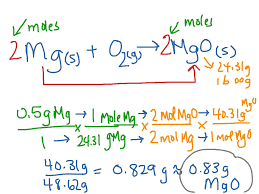 moles moles
2Mg(s) + O2(g) → 2MgO(s)
24.31g
16.00g
0.5gMg → 1 moleMg → 2molMgO → 40.31gMgO
1 → 24.31 gMg → 2molMg → 1molMgO
40.31g / 48.62g = 0.829g ≈ 0.83g
MgO